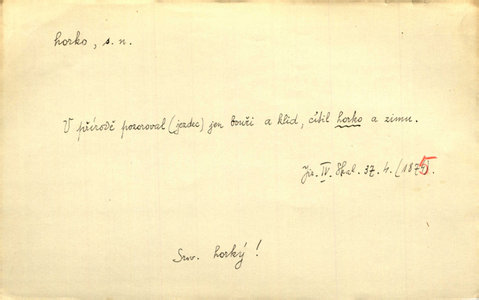 horko, s. n.
V přírodě pozoroval (jezdec) jen bouři a klid, cítil horko a zimu.
Jir. IV. Skal. 37. 4. (1875).
Srov. horký!